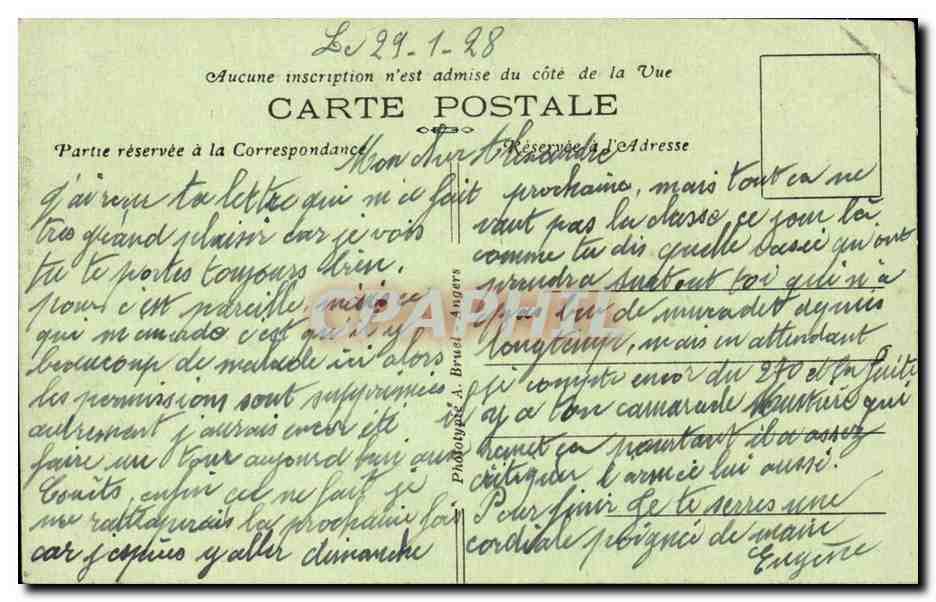 Le 29-1-28
Aucune inscription n'est admise du côté de la Vue
CARTE POSTALE
Partie réservée à la Correspondance
Réservée à l'Adresse
Mon cher Alexandre
j'ai reçu ta lettre qui m'e fait
très grand plaisir car je vois
tu te portes toujours bien,
pour c'est pareille,
qui m'emarde c'est qu'il y
beaucoup de malade ici alors
les permissions sont supprimées
autrement j'aurais encor été
faire un tour aujourd hui aux
enfin cel ne fait je
me rattaperais la prochaine fois
car j'espères y aller dimanche
prochaine, mais tout ça ne
vaut pas la classe ce jour là
comme tu dis quelle on
prendra surtout toi qui n'a
pas bu de muscadet depuis
longtemps, mais en attendant
je compte encor du 270 et la fuite
y a ton camarade qui
remet ça pourtant il a assez
critiquer l'armée lui aussi.
Pour finir Je te serres une
cordiale poignée de main
Eugène
Phototypie A. Bruel - Angers
CPAPHIL